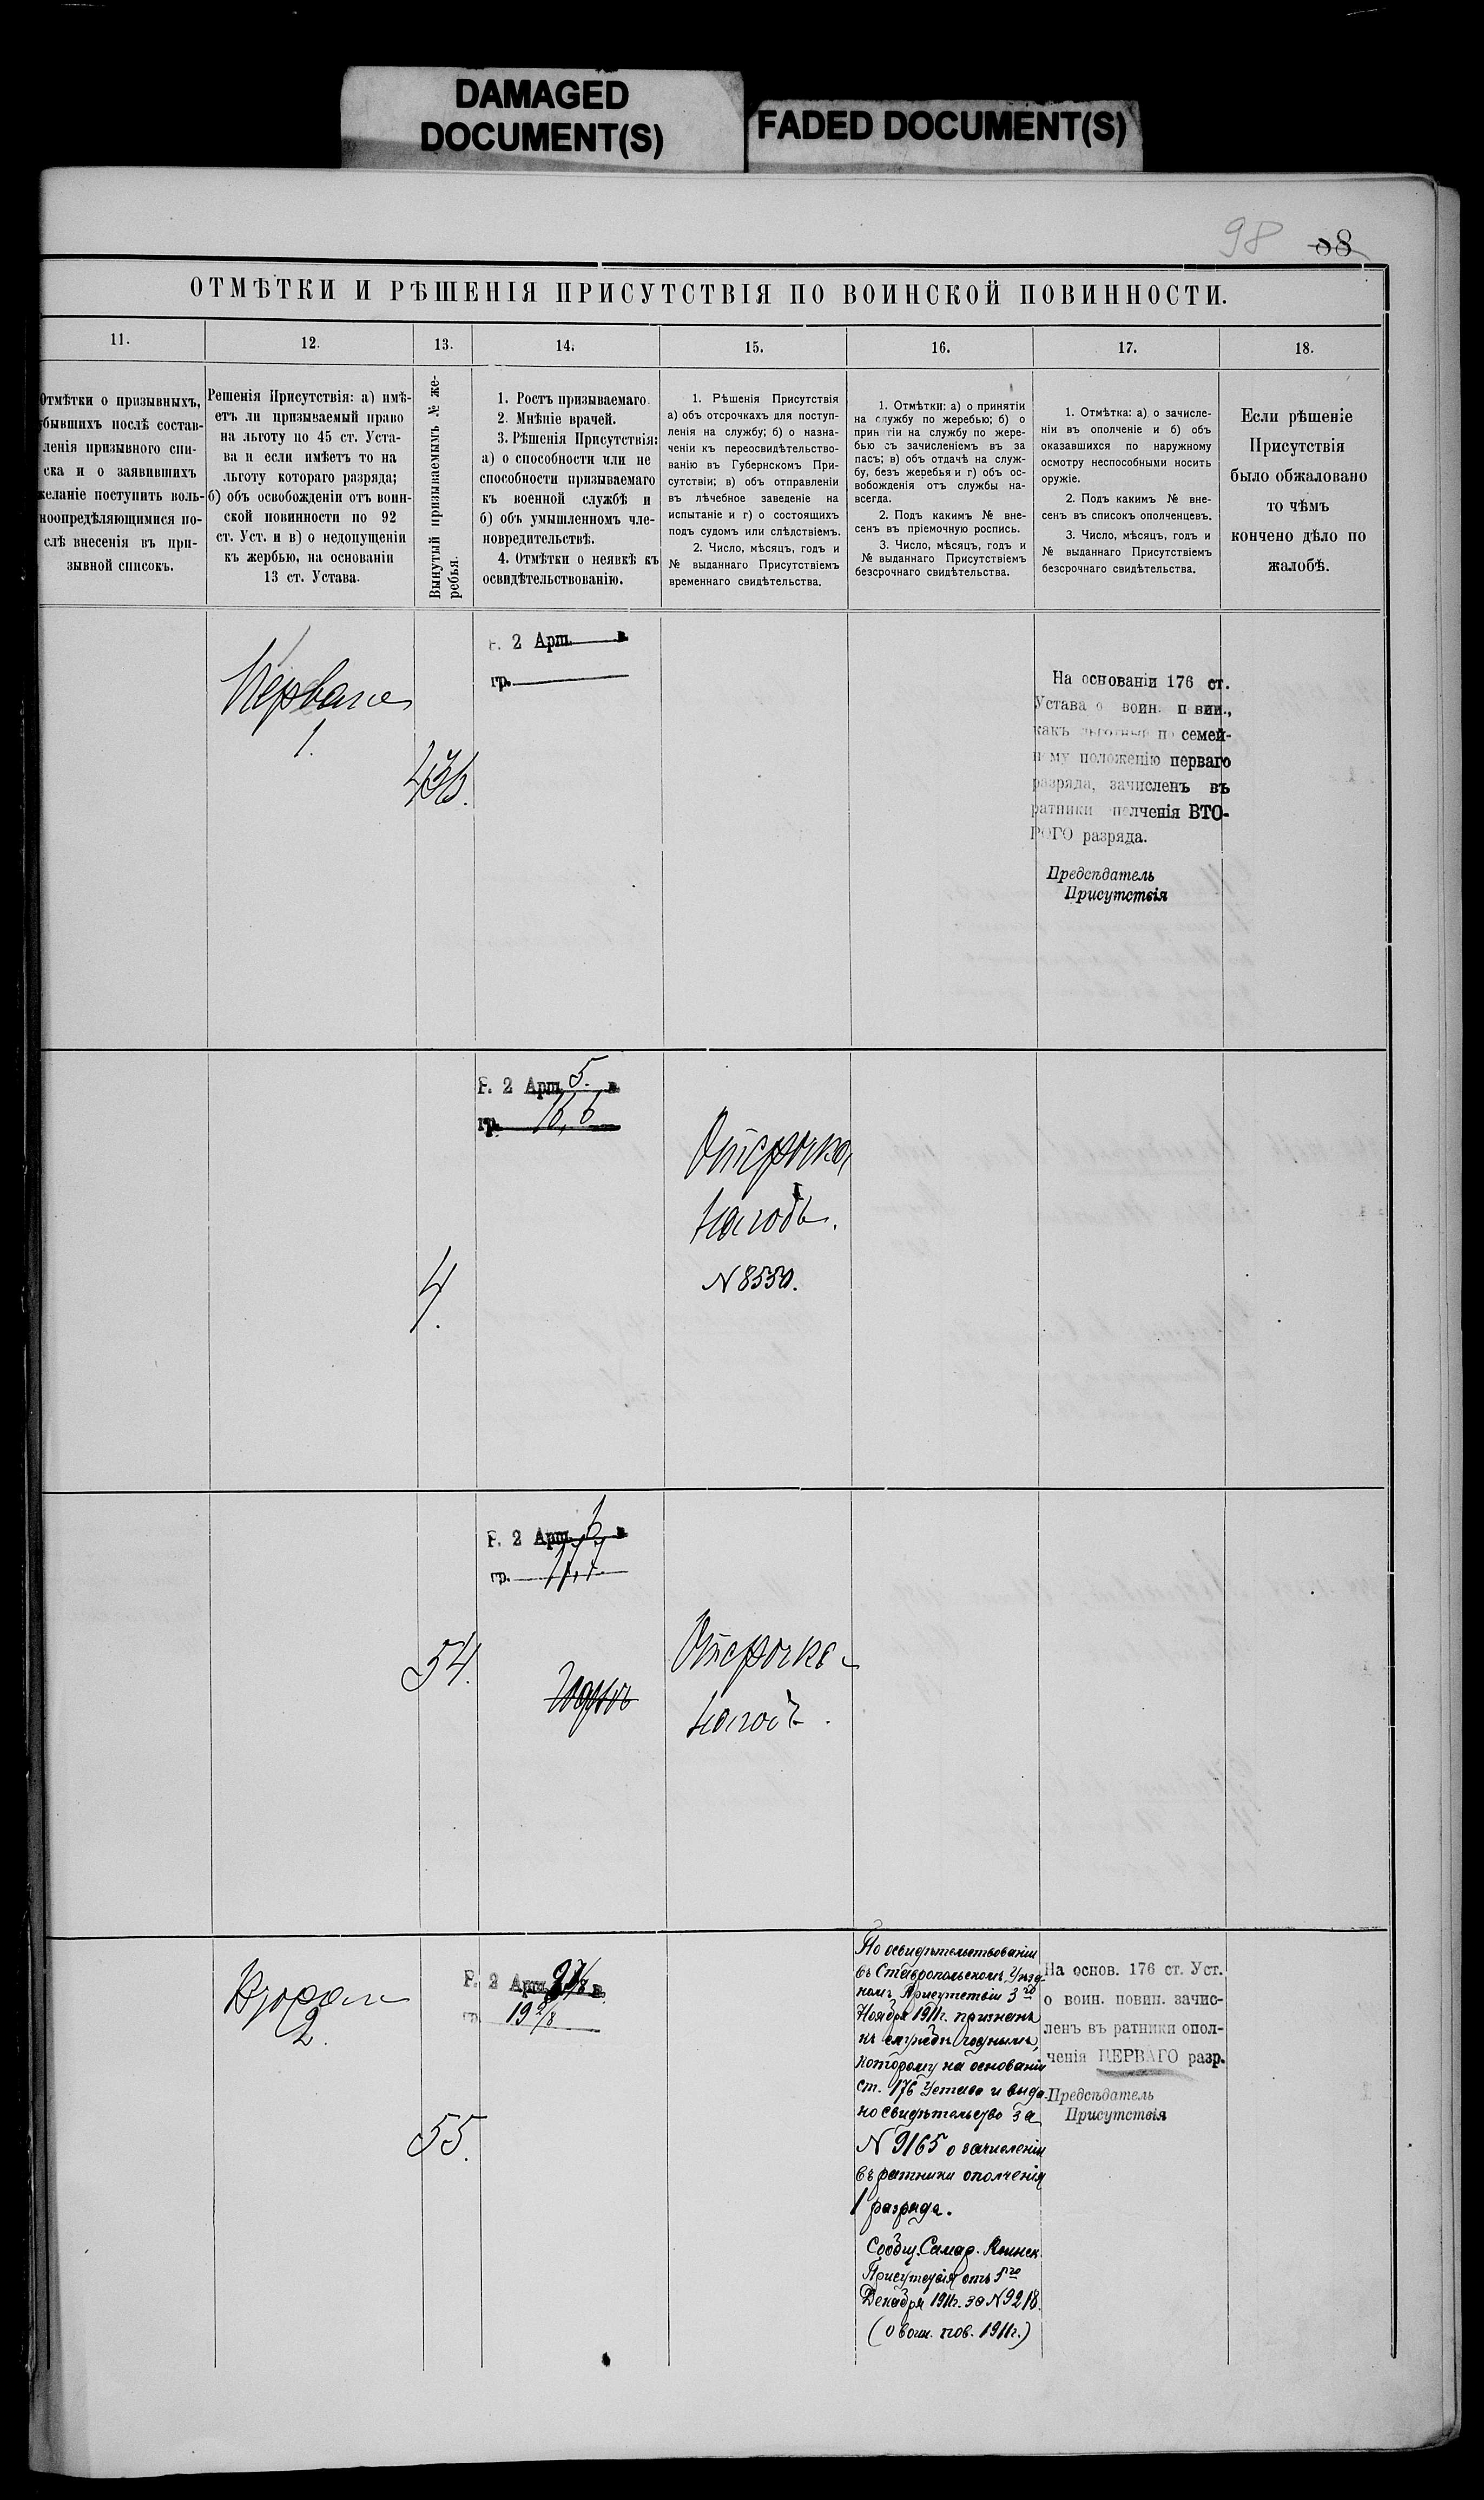 DAMAGED
DOCUMENT(S)
FADED DOCUMENT(S)
98 08
ОТМѢТКИ И РѢШЕНІЯ ПРИСУТСТВІЯ ПО ВОИНСКОЙ ПОВИННОСТИ.
11.
12.
13.
14.
15.
16.
17.
18.
Отмѣтки о призывныхъ,
убывшихъ послѣ состав-
ленія призывного спи-
ска и о заявившихъ
желаніе поступить воль-
ноопредѣляющимися по-
слѣ внесенія въ при-
зывной списокъ.
Решенія Присутствія: а) имѣ-
етъ ли призываемый право
на льготу по 45 ст. Уста-
ва и если имѣетъ то на
льготу котораго разряда;
б) объ освобожденіи отъ воин-
ской повинности по 92
ст. Уст. и в) о недопущеніи
къ жербью, на основаніи
13 ст. Устава.
Вынутый призываемымъ № же-
ребья.
1. Ростъ призываемаго.
2. Мнѣніе врачей.
3. Рѣшенія Присутствія:
а) о способности или не
способности призываемаго
къ военной службѣ и
б) объ умышленномъ чле-
новредительствѣ.
4. Отмѣтки о неявкѣ къ
освидѣтельствованію.
1. Рѣшенія Присутствія
а) объ отсрочкахъ для поступ-
ленія на службу; б) о назна-
ченіи къ переосвидѣтельство-
ванію въ Губернскомъ При-
сутствіи; в) объ отправленіи
въ лѣчебное заведеніе на
испытаніе и г) о состоящихъ
подъ судомъ или слѣдствіемъ.
2. Число, мѣсяцъ, годъ и
№ выданнаго Присутствіемъ
временнаго свидѣтельства.
1. Отмѣтки: а) о принятіи
на службу по жеребью; б) о
принятіи на службу по жере-
бью съ зачисленіемъ въ за
пасъ; в) объ отдачѣ на служ-
бу, безъ жеребья и г) объ ос-
вобожденія отъ службы на-
всегда.
2. Подъ какимъ № вне-
сенъ въ пріемочную роспись.
3. Число, мѣсяцъ, годъ и
№ выданнаго Присутствіемъ
безсрочнаго свидѣтельства.
1. Отмѣтка: а) о зачисле-
ніи въ ополченіе и б) объ
оказавшихся по наружному
осмотру неспособными носить
оружіе.
2. Подъ какимъ № вне-
сенъ въ списокъ ополченцевъ.
3. Число, мѣсяцъ, годъ и
№ выданнаго Присутствіемъ
безсрочнаго свидѣтельства.
Если рѣшеніе
Присутствія
было обжаловано
то чѣмъ
кончено дѣло по
жалобѣ.
1.
Р. 2 Арш. в.
гр.
На основаніи 176 ст.
Устава о воин. повин.,
какъ льготный по семей-
ному положенію перваго
разряда, зачисленъ въ
ратники ополченія ВТО-
РОГО разряда.
Предсѣдатель
Присутствія
4.
Р. 2 Арш. 5. в.
гр.
Отсрочка
на годъ.
N 8550.
54.
Р. 2 Арш. 6 в.
гр.
Отсрочка
на годъ.
2.
55.
Р. 2 Арш. в.
гр. 19 2/8
По освидѣтельствованіи
въ Ставропольскомъ Уѣзд-
номъ Присутствіи 3го
Ноября 1911г. признанъ
къ службѣ годнымъ,
которому на основаніи
ст. 176 Устава и выда-
но свидѣтельство за
N 9165 о зачисленіи
въ ратники ополченія
1 разряда.
Сообщ. Самар. Воинск.
Присутствія отъ 5го
Декабря 1911г. за N 9218.
(о воин. пов. 1911г.)
На основ. 176 ст. Уст.
о воин. повин. зачис-
ленъ въ ратники опол-
ченія ПЕРВАГО разр.
Предсѣдатель
Присутствія